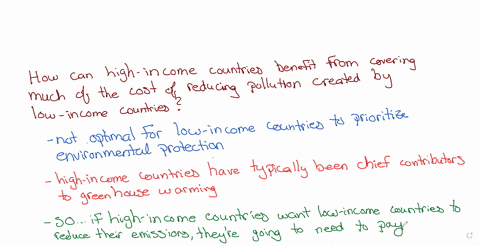 How can high-income countries benefit from covering
much of the cost of reducing pollution created by
low-income countries?
-not optimal for low-income countries to prioritize
environmental protection
-high-income countries have typically been chief contributors
to greenhouse warming
-so... if high-income countries want low-income countries to
reduce their emissions, they're going to need to pay